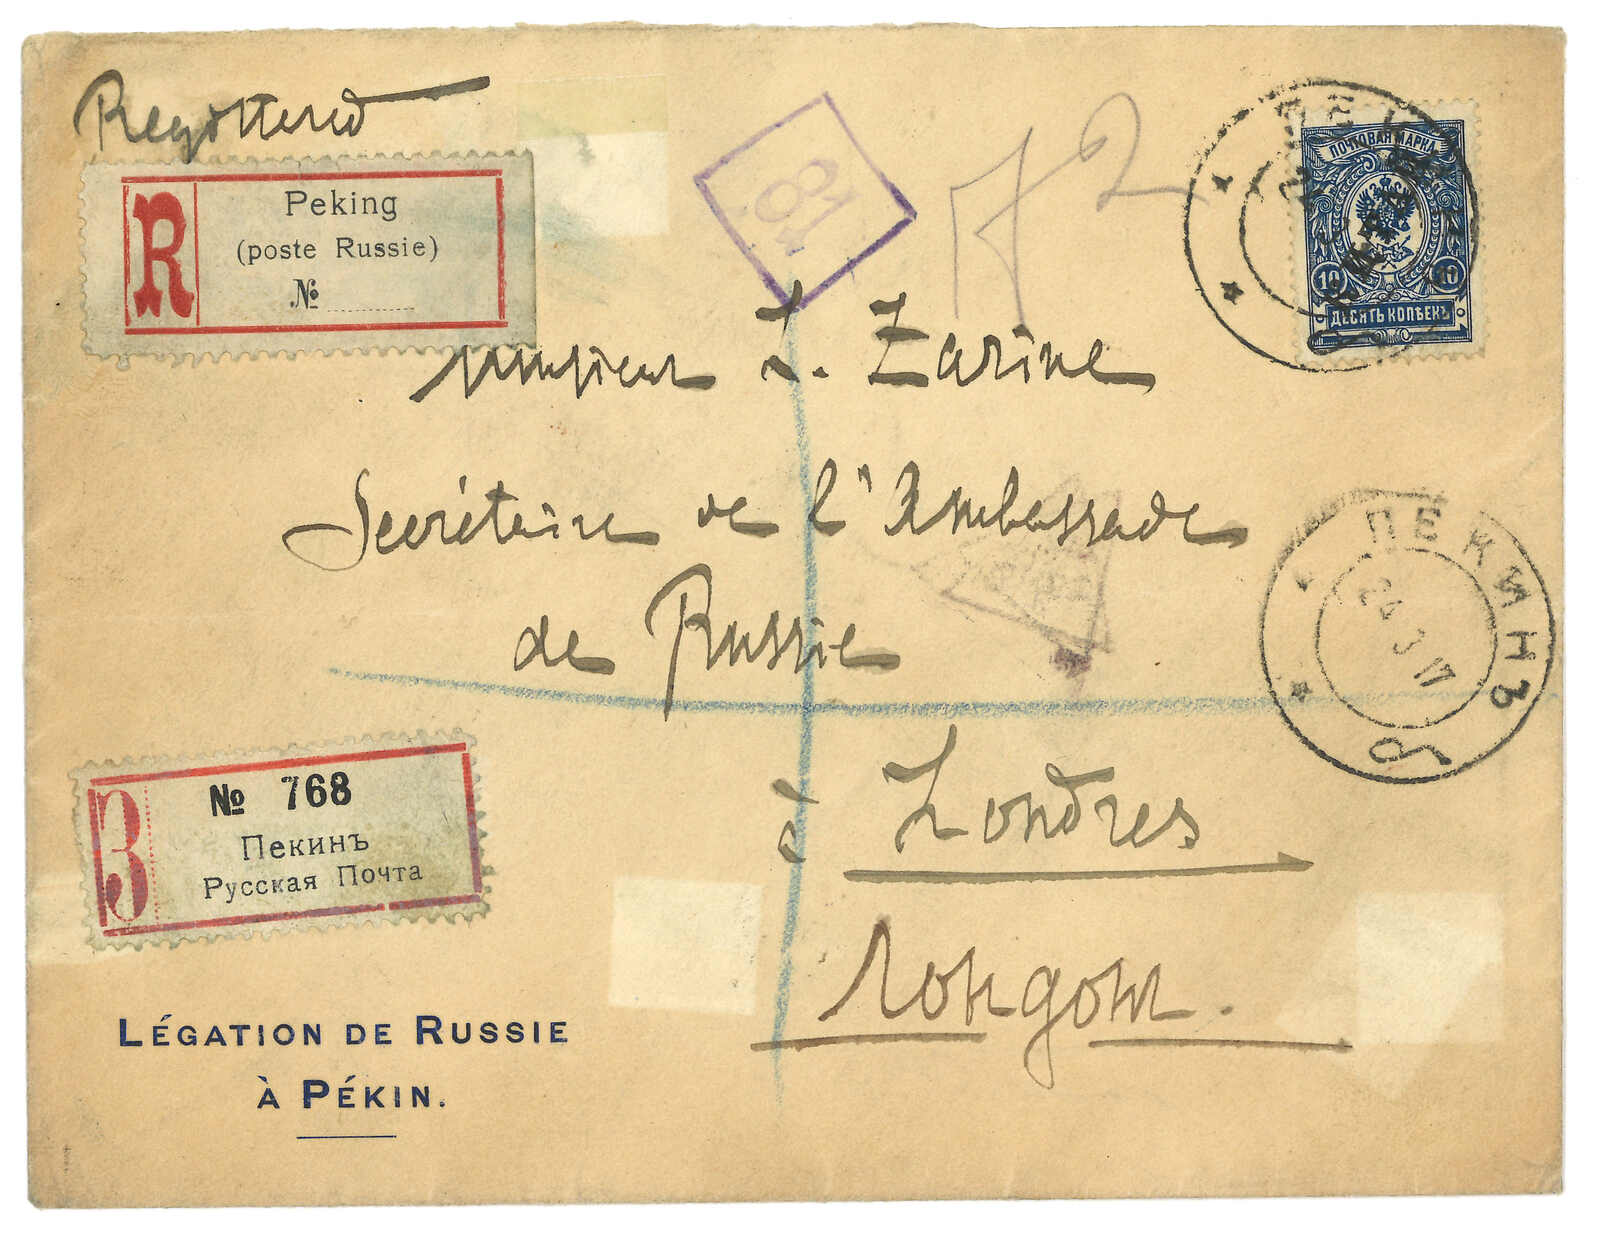 Registered
R
Peking
(poste Russie)
№
181
2
ПОЧТОВАЯ МАРКА
КИТАЙ
10 10
ДЕСЯТЬ КОПѢЕКЪ
Monsieur L. Zarine
Secrétaire de l'Ambassade
de Russie
à Londres
Лондон.
ПЕКИНЪ
24 3 17
З
№ 768
Пекинъ
Русская Почта
LÉGATION DE RUSSIE
À PÉKIN.